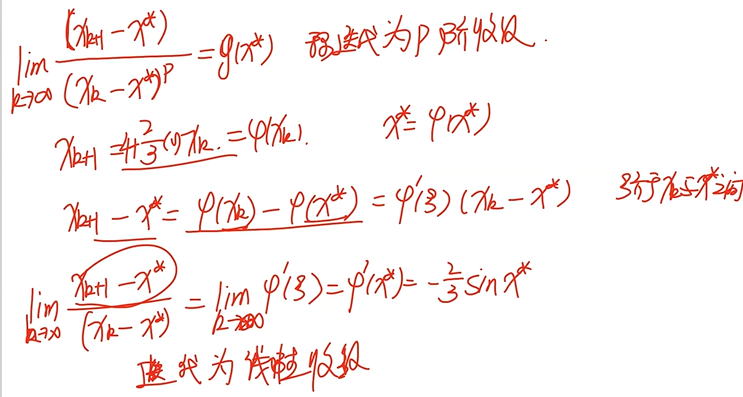 lim_{k→∞} (x_{k+1} - x*) / (x_k - x*)^p = g(x*) 称迭代为P阶收敛.
x_{k+1} = 4+\frac{2}{3}cosx_k. = φ(x_k). x* = φ(x*)
x_{k+1} - x* = φ(x_k) - φ(x*) = φ'(ξ)(x_k - x*) ξ介于x_k与x*之间
lim_{k→∞} (x_{k+1} - x*) / (x_k - x*) = lim_{k→∞} φ'(ξ) = φ'(x*) = -\frac{2}{3} sin x*
迭代为线性收敛